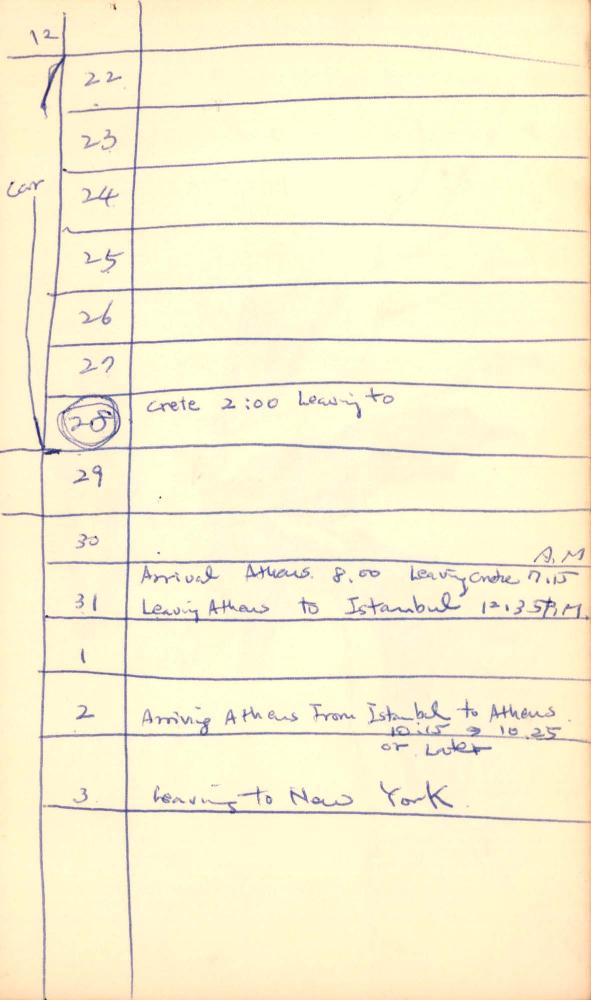 12
22
23
car
24
25
26
27
28 Crete 2:00 Leaving to
29
30
A.M
Arrival Athens. 8.00 Leaving Crete 7.15
31 Leaving Athens to Istanbul 12.35 P.M.
1
2 Arriving Athens From Istanbul to Athens.
10:15 → 10.25
or Later
3. Leaving to New York.